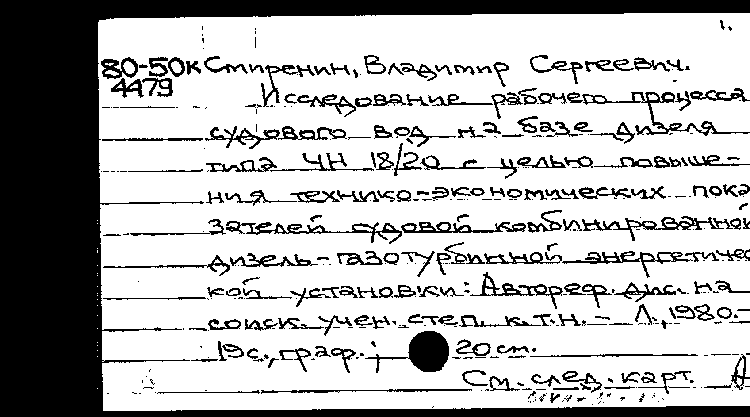 1.
80-50к Смиренин, Владимир Сергеевич.
4479
Исследование рабочего процесса
судового ВОД на базе дизеля
типа ЧН 18/20 с целью повыше-
ния технико-экономических пока
зателей судовой комбинированной
дизель-газотурбинной энергетичес
кой установки: Автореф. дис. на
соиск. учен. степ. к.т.н. - Л., 1980.-
19с., граф.; 20 см.
См. след. карт.